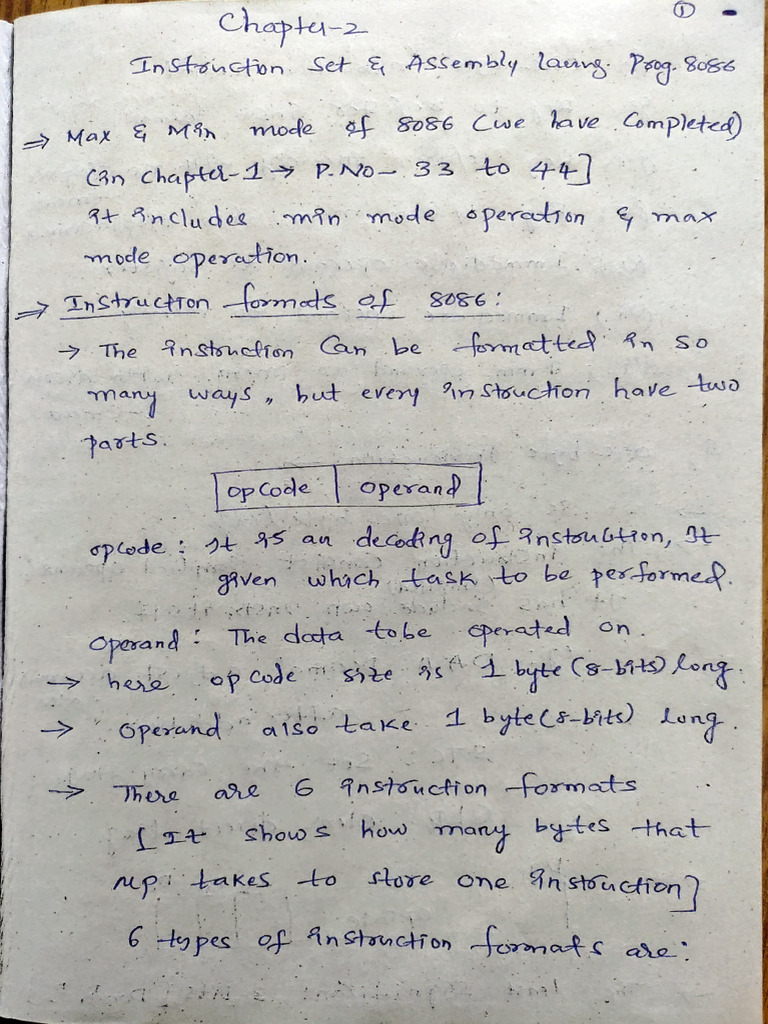 ①
Chapter-2
Instruction Set & Assembly Laung. Prog. 8086
⇒ Max & Min mode of 8086 (we have Completed)
(in chapter-1 → P.NO- 33 to 44]
it includes min mode operation & max
mode operation.
⇒ Instruction formats of 8086:
→ The instruction Can be formatted in so
many ways, but every instruction have two
parts.
opcode | operand
opcode : It is an decoding of instruction, It
given which task to be performed.
Operand : The data tobe operated on.
→ here op code size is 1 byte (8-bits) long.
→ Operand also take 1 byte (8-bits) long.
→ There are 6 instruction formats
[It shows how many bytes that
μp takes to store one instruction]
6 types of instruction formats are: